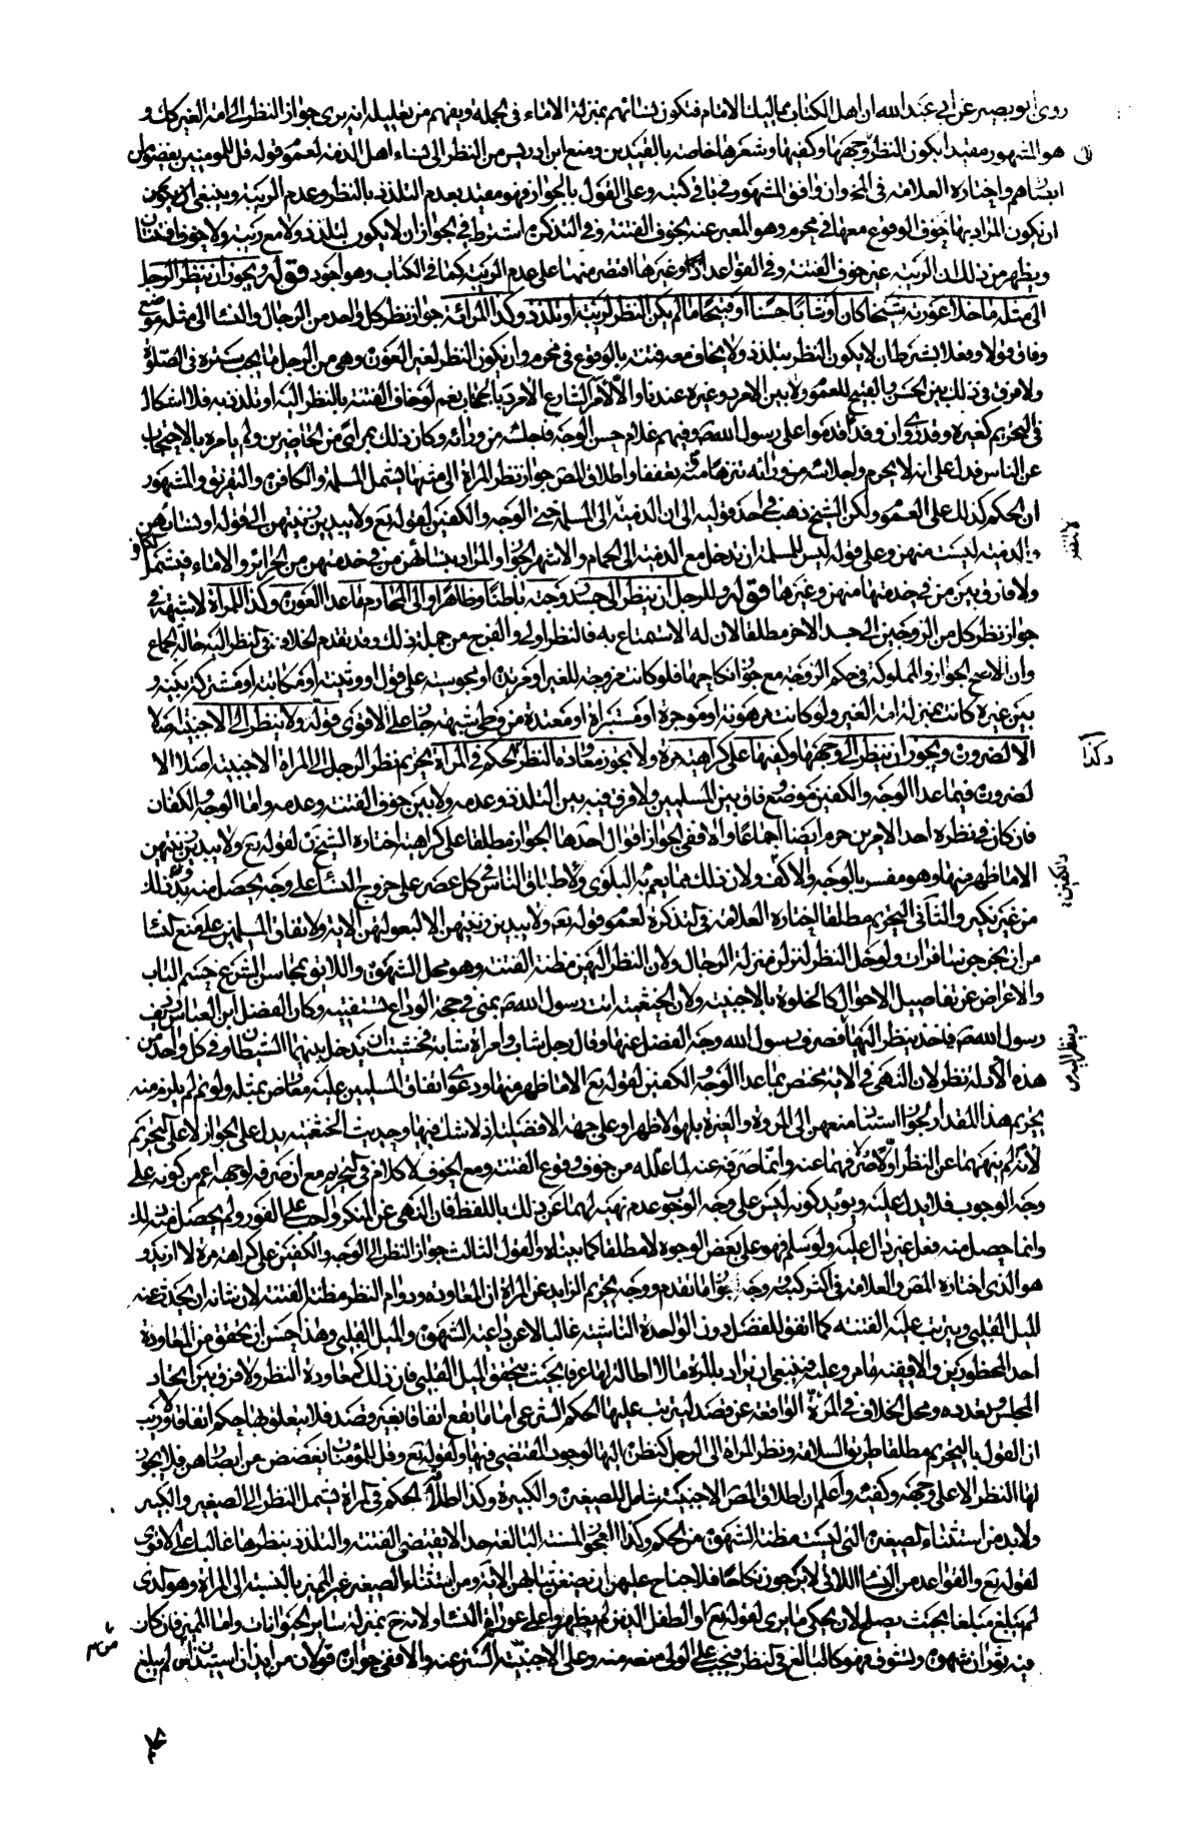 روى ابو بصير عن ابي عبد الله ان اهل الكتاب مماليك الامام فتكون نسائهم بمنزلة الاماء في الجملة ويفهم من تعليله انه يرى جواز النظر الى امة الغير كذلك و
هو المشهور مقيدا بكون النظر وجهها وكفيها وشعرها خاصة بالقيدين ومنع ابن ادريس من النظر الى نساء اهل الذمة لعموم قوله قل للمومنين يغضوا من
ابصارهم واختاره العلامة في المخ وان وافق المشهور في باقي كتبه وعلى القول بالجواز فهو مقيد بعدم التلذذ بالنظر وعدم الريبة وينبغي ان يكون
ان يكون المراد بها خوف الوقوع معها في محرم وهو المعبر عنه بخوف الفتنة وفي التذكرة اشترط في الجواز ان لا يكون لتلذذ ولا مع ريبة ولا خوف افتتان
ويظهر من ذلك ان الريبة غير خوف الفتنة وفي القواعد وغيرها اقتصر منهما على عدم الريبة كما في الكتاب وهو اجود قوله ويجوز ان ينظر الرجل
الى مثله ما خلا عورته شيخا كان او شابا حسنا او قبيحا ما لم يكن النظر لريبة او تلذذ وكذا المراة جواز نظر كل واحد من الرجال والنسا الى مثله موضع
وفاق قولا وفعلا بشرط ان لا يكون النظر بتلذذ ولا يخاف معه فتنة بالوقوع في محرم وان يكون النظر لغير العورة وهي من الرجل ما يجب ستره في الصلوة
ولا فرق في ذلك بين الحسن والقبيح للعموم ولا بين الامرد وغيره عندنا والا لامر الشارع الامرد بالحجاب نعم لو خاف الفتنة بالنظر اليه او تلذذ به فلا اشكال
في التحريم كغيره وقد روى ان وفدا قدموا على رسول الله ص وفيهم غلام حسن الوجه فاجلسه من ورائه وكان ذلك بمرأى من الحاضرين ولم يامره بالاحتجاب
عن الناس فدل على انه لا يحرم واجلاسه من ورائه تنزها منه وتعففا واطلاق المص جواز نظر المراة الى مثلها يشمل المسلمة والكافرة والمشهور
ان الحكم كذلك على العموم ولكن الشيخ ذهب في احد قوليه الى ان الذمية الى المسلمة حتى الوجه والكفين لقوله تع ولا يبدين زينتهن الى قوله او نسائهن
والذمية ليست منهن وعلى قوله ليس للمسلمة ان تدخل مع الذمية الى الحمام والاشهر الجواز والمراد بنسائهن من في خدمتهن من الحرائر والاماء فيشمل
ولا فارق بين من في خدمتها منهن وغيرها قوله وللرجل ان ينظر الى جسد زوجته باطنا وظاهرا والى المحارم ما عدا العورة وكذا للمراة لا شبهة في
جواز نظر كل من الزوجين الى جسد الاخر مطلقا لان له الاستمتاع به فالنظر اولى والفرج من جملة ذلك وقد تقدم الخلاف في النظر اليه حالة الجماع
وان الاصح الجواز والمملوكة في حكم الزوجة مع جواز نكاحها فلو كانت مزوجة للغير او مرتدة او مجوسية على قول او وثنية او مكاتبة او مشتركة بينه و
بين غيره كانت بمنزلة امة الغير ولو كانت مرهونة او موجرة او مستبراة او معتدة من وطى شبهة جاز على الاقوى قوله ولا ينظر الى الاجنبية اصلا
الا لضرورة ويجوز ان ينظر الى وجهها وكفيها على كراهية مرة ولا يجوز معاودة النظر وكذا الحكم في المراة تحريم نظر الرجل الى المراة الاجنبية اصلا الا
لضرورة فيما عدا الوجه والكفين موضع وفاق بين المسلمين ولا فرق فيه بين التلذذ وعدمه ولا بين خوف الفتنة وعدمه واما الوجه والكفان
فان كان في نظره احد الامرين حرم ايضا اجماعا والا ففي الجواز اقوال احدها الجواز مطلقا على كراهية اختاره الشيخ لقوله تع ولا يبدين زينتهن
الا ما ظهر منها وهو مفسر بالوجه والاكف ولان ذلك مما يعم به البلوى ولاطباق الناس في كل عصر على خروج النساء على وجه يحصل منه بدو ذلك
من غير نكير والثاني التحريم مطلقا اختاره العلامة في التذكرة لعموم قوله تع ولا يبدين زينتهن الا لبعولتهن الاية ولاتفاق المسلمين على منع النسا
من ان يخرجن سافرات ولو حل النظر لنزلن منزلة الرجال ولان النظر اليهن مظنة الفتنة وهو محل الشهوة واللايق بمحاسن الشرع حسم الباب
والاعراض عن تفاصيل الاحوال كالخلوة بالاجنبية ولان الخثعمية اتت رسول الله ص بمنى في حجة الوداع تستفتيه وكان الفضل ابن العباس رديف
رسول الله ص فاخذ ينظر اليها فصرف رسول الله وجه الفضل عنها وقال رجل شاب وامراة شابة فخشيت ان يدخل بينهما الشيطان وفي كل واحد من
هذه الادلة نظر لان النهي في الاية مختص بما عدا الوجه والكفين لقوله تع الا ما ظهر منها ودعوى اتفاق المسلمين عليه معارض بمثله ولو تم لم يلزم منه
تحريم هذا المقدار لجواز استناد منعهن الى المروة والغيرة بل هو الاظهر او على جهة الافضلية اذ لا شك فيها وحديث الخثعمية يدل على الجواز لا على التحريم
لانه لم ينههما عن النظر اولا وانما صرفه عنه لما علله من خوف وقوع الفتنة ومع الخوف لا كلام في التحريم مع ان صرفه لوجهه اعم من كونه على
وجه الوجوب فلا يدل عليه ويؤيد كونه ليس على وجه الوجوب عدم نهيه لهما عن ذلك باللفظ فان النهي عن المنكر واجب على الفور ولم يحصل منه ذلك
وانما حصل منه فعل غير دال عليه ولو سلم فهو على بعض الوجوه لا مطلقا كما بيناه والقول الثالث جواز النظر الى الوجه والكفين على كراهة مرة لا ازيد و
هو الذي اختاره المص والعلامة في اكثر كتبه وجه الجواز ما تقدم ووجه تحريم الزايد عن المرة ان المعاودة ودوام النظر مظنة الفتنة لان شانه ان يحدث عنه
الميل القلبي ويترتب عليه الفتنة كما اتفق للفضل دون الواحدة الناشية غالبا لا عن داعية الشهوة والميل القلبي وهذا حسن ان تحقق من المعاودة
احد المحظورين والا ففيه ما مر وعليه فينبغي ان يراد بالمرة ما لا اطالة لها عرفا بحيث يتحقق الميل القلبي فان ذلك كمعاودة النظر ولا فرق بين اتحاد
المجلس وتعدده ومحل الخلاف في المرة الواقعة عن قصد ليترتب عليها الحكم الشرعي اما ما يقع اتفاقا بغير قصد فلا يتعلق بها حكم اتفاقا ولا ريب
ان القول بالتحريم مطلقا طريق السلامة ونظر المراة الى الرجل كنظره اليها لوجود المقتضي فيهما ولقوله تع وقل للمؤمنات يغضضن من ابصارهن فلا يجوز
لها النظر الا على وجهه وكفيه واعلم ان اطلاق المص الاجنبية يشمل الصغيرة والكبيرة وكذا اطلاق الحكم في المراة يشمل النظر الى الصغير والكبير
ولابد من استثناء الصغيرة التي ليست مظنة الشهوة من الحكم وكذا العجوز المسنة البالغة حدا لا يقتضي الفتنة والتلذذ بنظرها غالبا على الاقوى
لقوله تع والقواعد من النساء اللاتي لا يرجون نكاحا فلا جناح عليهن ان يضعن ثيابهن الاية ومن استثناء الصغير غير المميز بالنسبة الى المراة وهو الذي
لم يبلغ مبلغا بحيث يصلح لان يحكي ما يرى لقوله تع او الطفل الذين لم يظهروا على عورات النسا ولانه ح بمنزلة ساير الحيوانات واما المميز فان كان
فيه ثوران شهوة وتشوق فهو كالبالغ في النظر فيجب على الولي منعه منه وعلى الاجنبية التستر عنه والا ففي جوازه قولان من ايذان استيذان من لم يبلغ